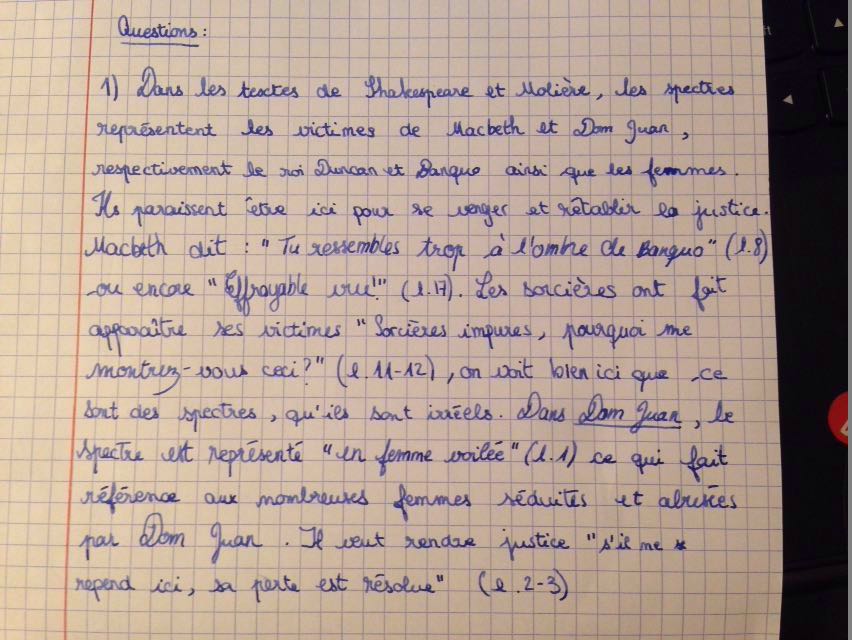 Questions :
1) Dans les textes de Shakespeare et Molière, les spectres
représentent les victimes de Macbeth et Dom Juan,
respectivement le roi Duncan et Banquo ainsi que les femmes.
Ils paraissent être ici pour se venger et rétablir la justice.
Macbeth dit : "Tu ressembles trop à l'ombre de Banquo" (l.8)
ou encore "Effroyable vue!" (l.17). Les sorcières ont fait
apparaître ses victimes "Sorcières impures, pourquoi me
montrez-vous ceci?" (l.11-12), on voit bien ici que ce
sont des spectres, qu'ils sont irréels. Dans Dom Juan, le
spectre est représenté "en femme voilée" (l.1) ce qui fait
référence aux nombreuses femmes séduites et abusées
par Dom Juan. Il veut rendre justice "s'il ne
repend ici, sa perte est résolue" (l.2-3)